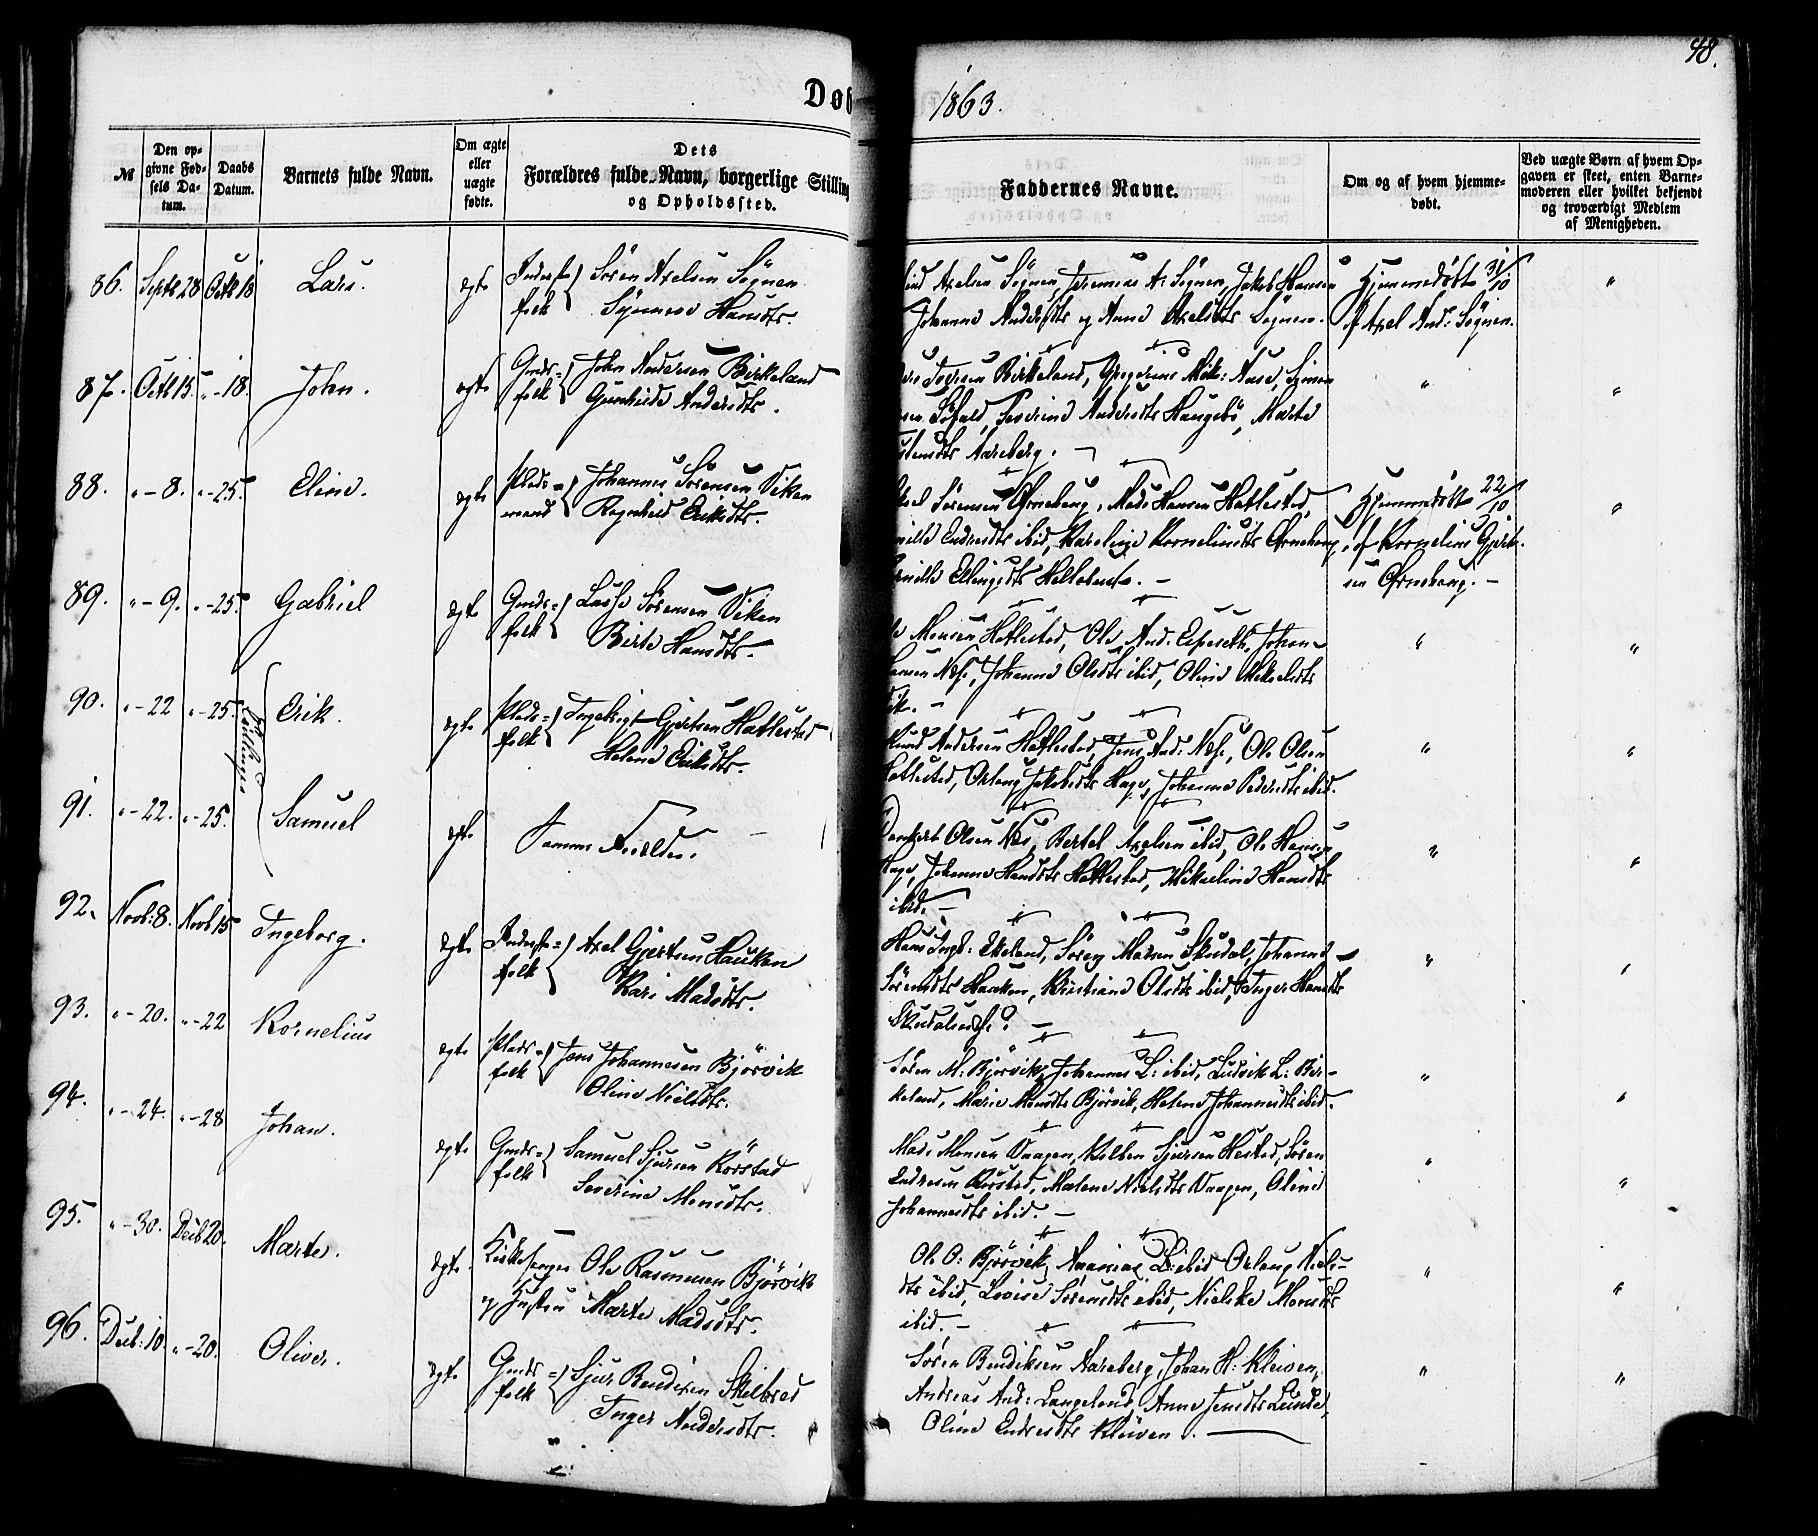 48.
Døb 1863.
№
Den op-
givne Fød-
sels Da-
tum.
Daabs
Datum.
Barnets fulde Navn.
Om ægte
eller
uægte
fødte.
Dets
Forældres fulde Navn, borgerlige Stilling
og Opholdssted.
Faddernes Navne.
Om og af hvem hjemme-
døbt.
Ved uægte Børn af hvem Op-
gaven er skeet, enten Barne-
moderen eller hvilket bekjendt
og troværdigt Medlem
af Menigheden.
86. Septb 28 Octb 18 Lars. ægte
folk Sören Axelsen Sögnen
Synneve Hansdtr.
Axelsen Sögnen, Jeremias A: Sögnen, Jakob Hansen
Johanne Andersdtr og Anne Axelsdtr Sögnen.
Hjemmedöbt
af Axel And: Sögnen.
"
87. Octb 15. "-18. John. ægte
Gmds= John Andersen Birkeland
folk Gunhilde Andersdtr.
Birkeland, Gregorius Mik: Aase, Simon
Severine Andersdtr Haugebö, Marte
Aareberg. -
" "
88. "-8. "-25. Eline. ægte
Plads= Johannes Sörensen Viken
mand Ragnhild Eriksdtr.
Sörensen Mads Hansen Hatlestad,
Endresdtr ibid, Karoline Kornelinsdtr
Ellingsdtr
Hjemmedöbt 22/10
af Kornelius Gjert-
sen
"
89. "-9. "-25. Gabriel ægte
Gmds= Lasse Sörensen Viken
folk Birte Hansdtr.
Monsen Hatlestad, Ole And. Espeseth, Johan-
Hansen Næs, Johanne Olsdtr ibid, Oline Mikkelsdtr
Vik. -
" "
90. "-22 "-25. Erik. ægte
Tvillinger
Plads= Ingebrigt Gjertsen Hatlestad
folk Helene Eriksdtr.
Knud Andersen Hatlestad, Jens And: Næs, Ole Olsen
Hatlestad, Orlaug Jakobsdtr Hage, Johanne Pedersdtr ibid.
" "
91. "-22. "-25. Samuel ægte
Samme Forældre.
Dankert Olsen Næs, Bertel Axelsen ibid, Ole Hansen
Hage, Johanne Hansdtr Hatlestad, Mikkeline Hansdtr
ibid. -
" "
92. Novb: 8. Novb 15 Ingeborg. ægte
Axel Gjertsen Hauken
folk Kari Madsdtr.
Hans Ingb: Ekeland, Sören Madsen Skudal, Johanne
Sörensdtr Hauken, Kristiane Olsdtr ibid, Inger Hansdtr
"
93. "-20. "-22 Kornelius ægte
Plads= Jens Johannesen Björvik
folk Oline Nielsdtr.
Sören M: Björvik, Johannes L: ibid, Ludvik L: Bir-
keland, Marie Monsdtr Björvik, Helene Johannesdtr ibid.
" "
94. "-24. "-28 Johan. ægte
Gmds= Samuel Sjursen Rörstad
folk Severine Monsdtr.
Mads Monsen Vaagen, Kolben Sjursen Hestad, Sören
Endresen Rörstad, Malene Nielsdtr Vaagen, Oline
Johannesdtr ibid. -
" "
95. "-30. Decb 20. Marte. ægte
Kirkesanger Ole Rasmussen Björvik
og Hustru Marte Madsdtr.
Ole O: Björvik, Ananias L: ibid Orlaug Niels-
dtr ibid, Lovise Sörensdtr ibid, Nielske Monsdtr
ibid. -
" "
96. Decb: 10. "-20. Oliver. ægte
Gmds= Sjur Bendixen Skilbred
folk Inger Andersdtr.
Sören Bendiksen Aareberg, Johan H: Kleiven,
Andreas And: Langeland, Anne Jensdtr Lunde,
Oline Endresdtr Kleiven.
" "